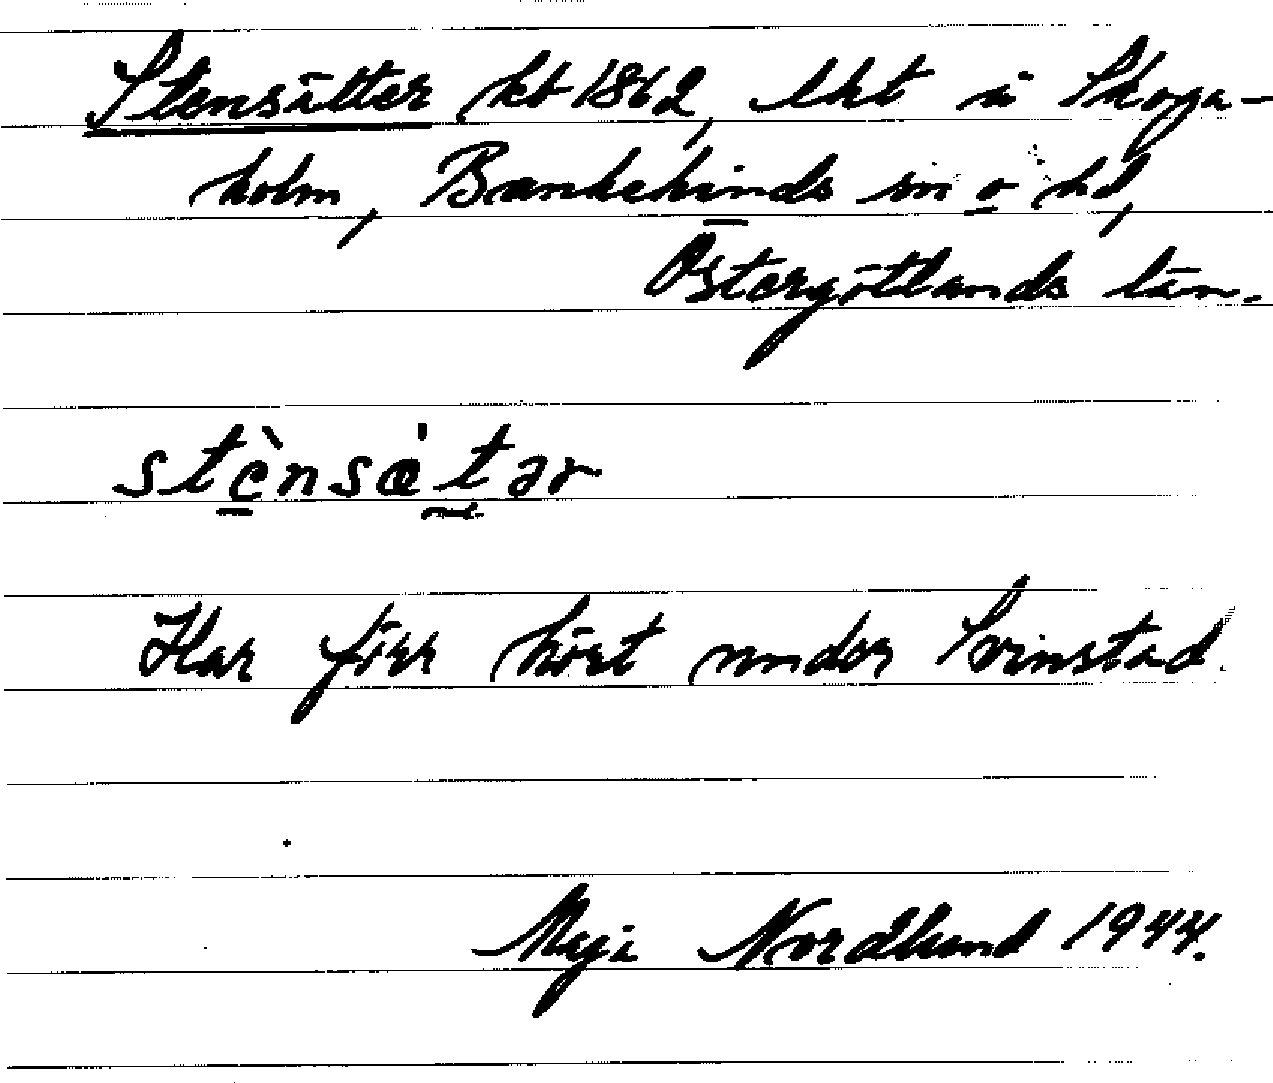 Stensätter hb 1862, lht u Skoga-
holm, Bankekinds sn o hd,
Östergötlands län.
stènsætər
Har förr hört under Svinstad.
Maja Nordlund 1944.